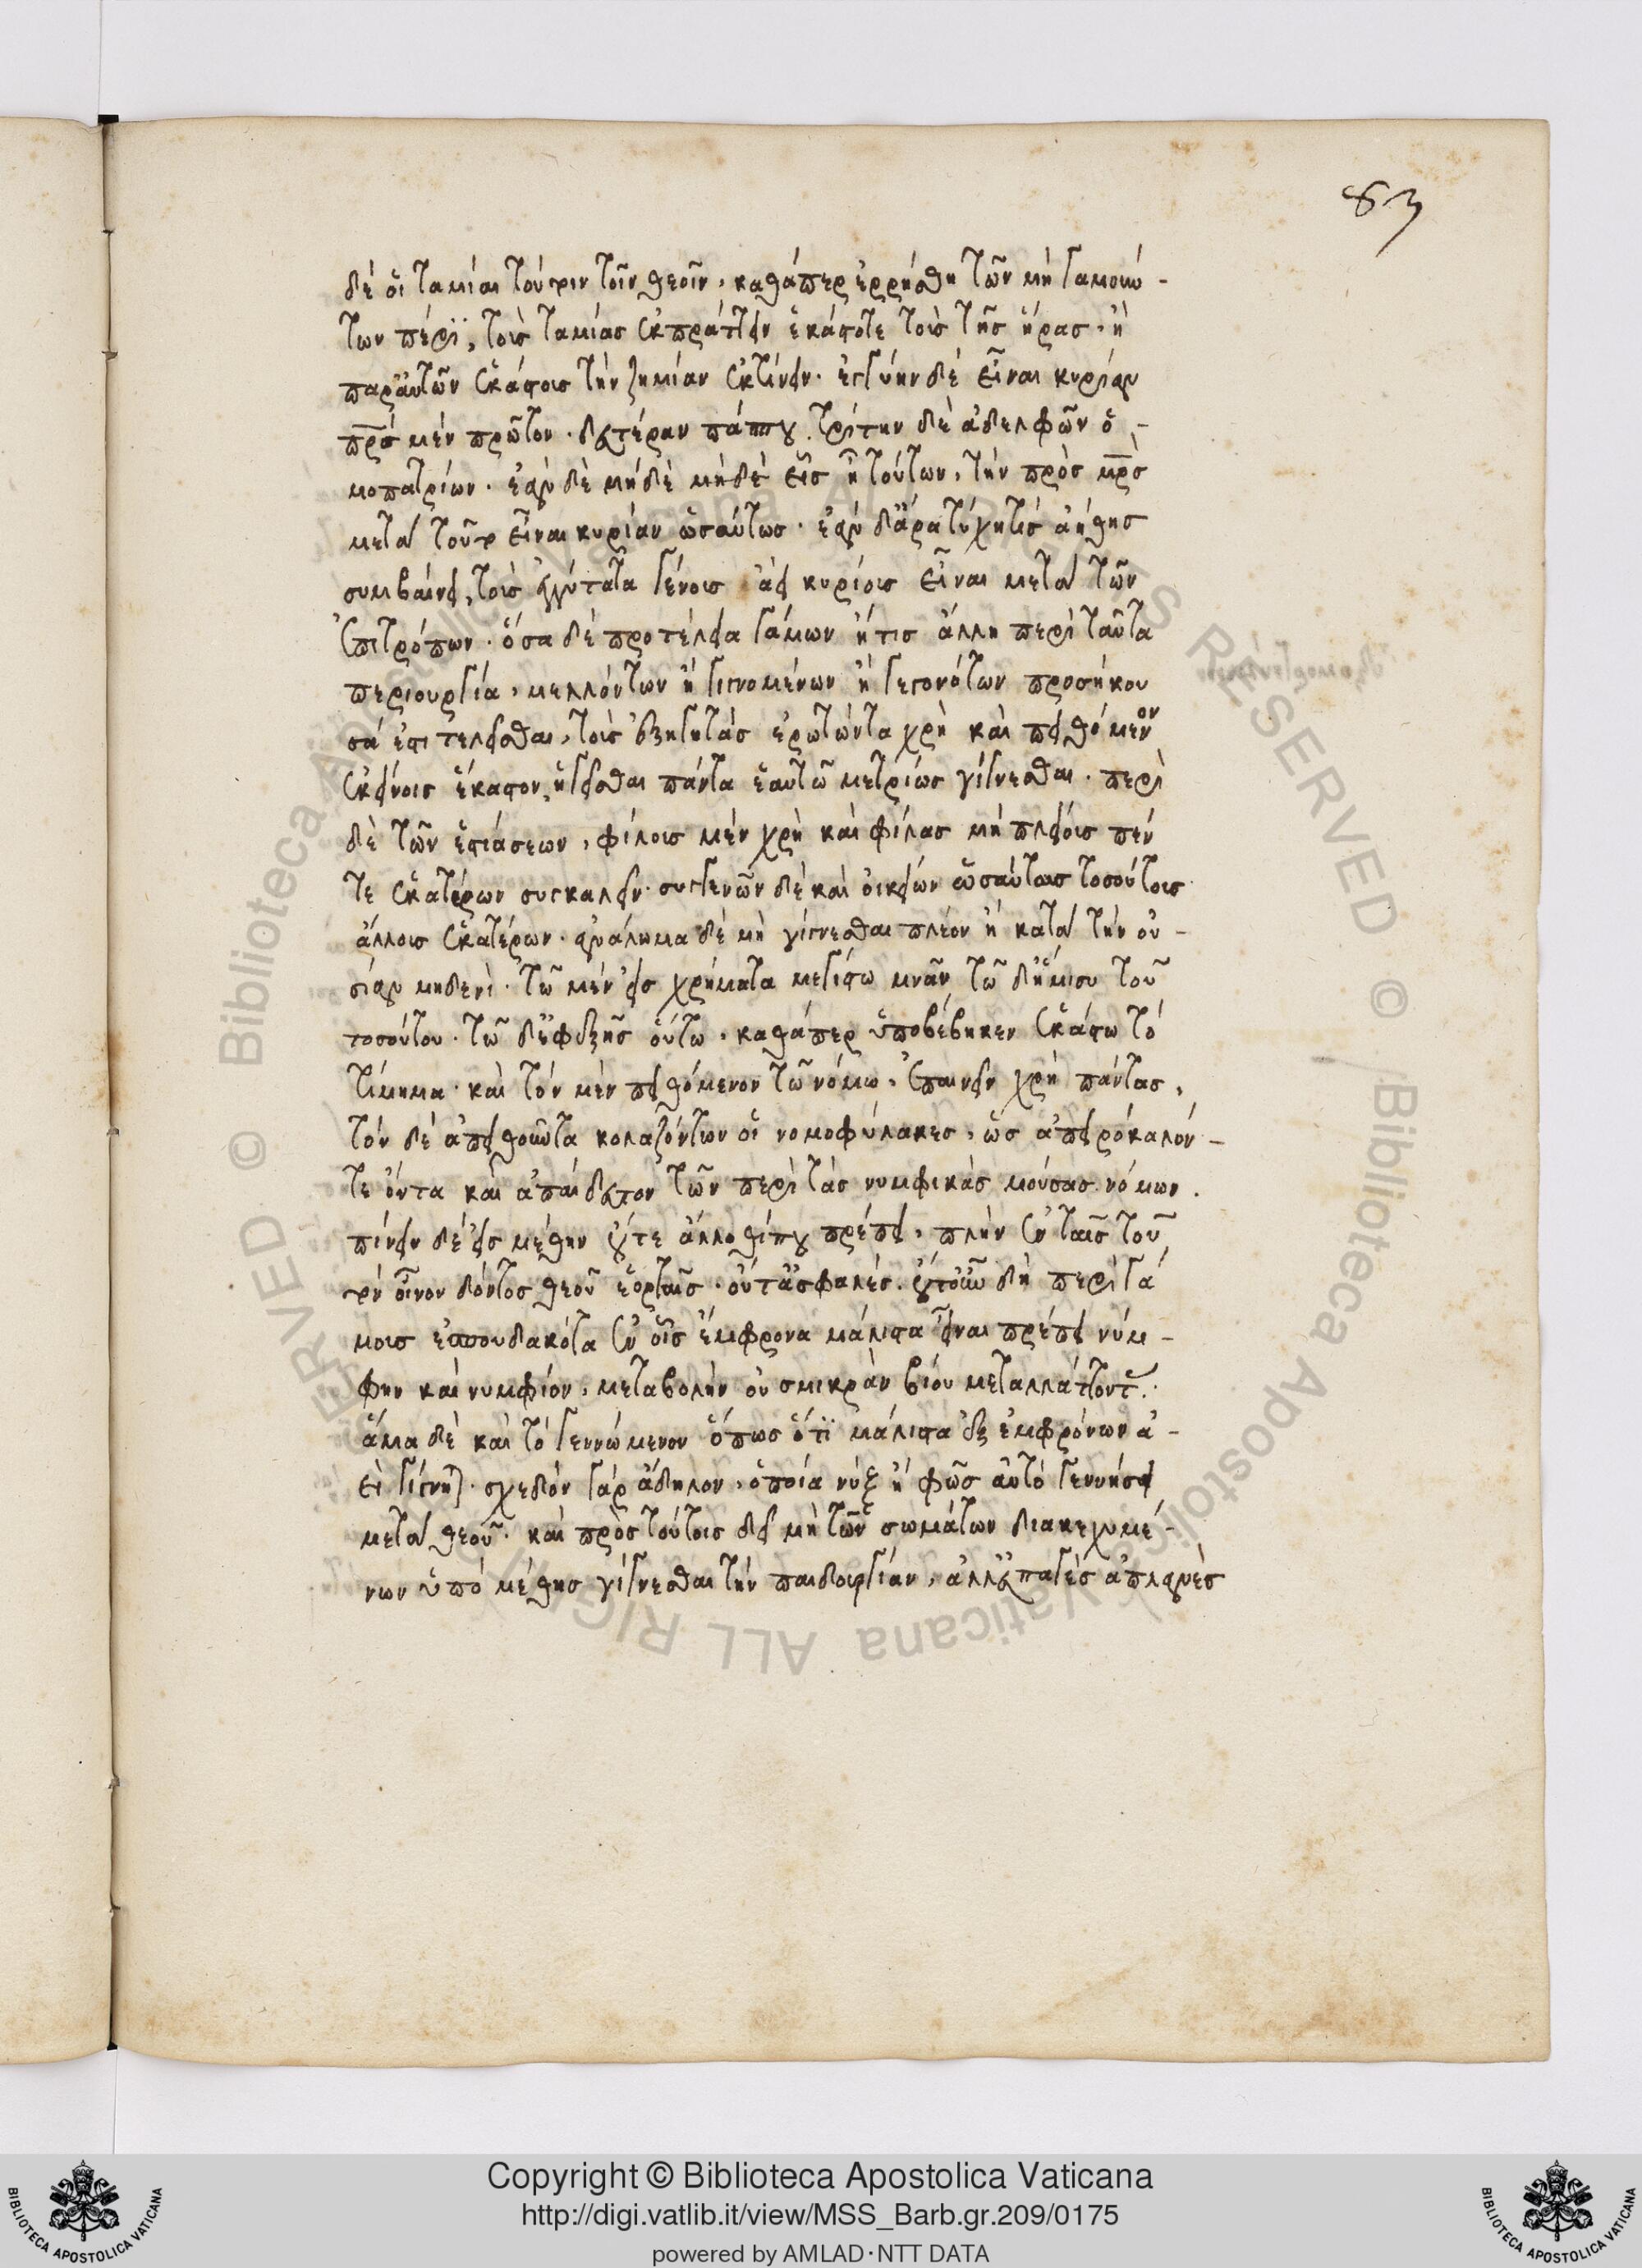 83
δὲ οἱ ταμίαι τούτοιν τοῖν θεοῖν, καθάπερ ἐρρήθη τῶν μὴ γαμούν-
των πέρϊ, τοὺς ταμίας ἐκπράττειν ἑκάστοτε τοὺς τῆς ἥρας, ἢ
παρ' αὑτῶν ἑκάστους τὴν ζημίαν ἐκτίνειν. ἐγγύην δὲ εἶναι κυρίαν
πρς μὲν πρῶτον. δευτέραν πάππου. τρίτην δὲ ἀδελφῶν ὁ-
μοπατρίων. ἐὰν δὲ μηδὲ μηδὲ εἷς ἦ τούτων, τὴν πρὸς μρς
μετὰ τοῦτο εἶναι κυρίαν ὡσαύτως. ἐὰν δ' ἄρα τύχη τις ἀήθης
συμβαίνει, τοὺς ἐγγύτατα γένους ἀεὶ κυρίους εἶναι μετὰ τῶν
ἐπιτρόπων. ὅσα δὲ προτέλεια γάμων ἤ τις ἄλλη περὶ ταῦτα
περιουργία, μελλόντων ἢ γιγνομένων ἢ γεγονότων προσήκου
σά ἐστι τελεῖσθαι, τοὺς ἐξηγητὰς ἐρωτῶντα χρὴ καὶ πειθόμενον
ἐκείνοις ἕκαστον, ἡγεῖσθαι πάντα ἑαυτῶ μετρίως γίγνεσθαι. περὶ
δὲ τῶν ἑστιάσεων, φίλους μὲν χρὴ καὶ φίλας μὴ πλείους πέν
τε ἑκατέρων συγκαλεῖν. συγγενῶν δὲ καὶ οἰκείων ὡσαύτως τοσούτους
ἄλλους ἑκατέρων. ἀνάλωμα δὲ μὴ γίγνεσθαι πλέον ἢ κατὰ τὴν οὐ-
σίαν μηδενὶ. τῶ μὲν εἰς χρήματα μεγίστω μνᾶν τῶ δ' ἥμισυ τοῦ
τοσούτου. τῶ δ' ἐφεξῆς οὕτω, καθάπερ ὑποβέβηκεν ἑκάστω τὸ
τίμημα. καὶ τὸν μὲν πειθόμενον τῶ νόμω, ἐπαινεῖν χρὴ πάντας,
τὸν δὲ ἀπειθοῦντα κολαζόντων οἱ νομοφύλακες, ὡς ἀπειρόκαλόν-
τε ὄντα καὶ ἀπαίδευτον τῶν περὶ τὰς νυμφικὰς μούσας νόμων.
πίνειν δὲ εἰς μέθην οὔτε ἄλλοθί που πρέπει, πλὴν ἐν ταῖς τοῦ
τὸν οἶνον δόντος θεοῦ ἑορταῖς. οὔτ' ἀσφαλές. οὔτ' οὖν δὴ περὶ γά
μους ἐσπουδακότα ἐν οἷς ἔμφρονα μάλιστα εἶναι πρέπει νύμ-
φην καὶ νυμφίον, μεταβολὴν οὐ σμικρὰν βίου μεταλλάττοντ.
ἅμα δὲ καὶ τὸ γεννώμενον ὅπως ὅτϊ μάλιστα ἐξ ἐμφρόνων ἀ-
εὶ γίγνηται. σχεδὸν γὰρ ἄδηλον, ὁποία νὺξ ἢ φῶς αὐτὸ γεννήσει
μετὰ θεοῦ. καὶ πρὸς τούτοις δεῖ μὴ τῶν σωμάτων διακεχυμέ-
νων ὑπὸ μέθης γίγνεσθαι τὴν παιδουργίαν, ἀλλ' εὐπαγὲς ἀπλανὲς
Copyright © Biblioteca Apostolica Vaticana
http://digi.vatlib.it/view/MSS_Barb.gr.209/0175
powered by AMLAD·NTT DATA
BIBLIOTECA APOSTOLICA VATICANA
BIBLIOTECA APOSTOLICA VATICANA
© Biblioteca Apostolica Vaticana ALL RIGHTS RESERVED
© Biblioteca Apostolica Vaticana ALL RIGHTS RESERVED